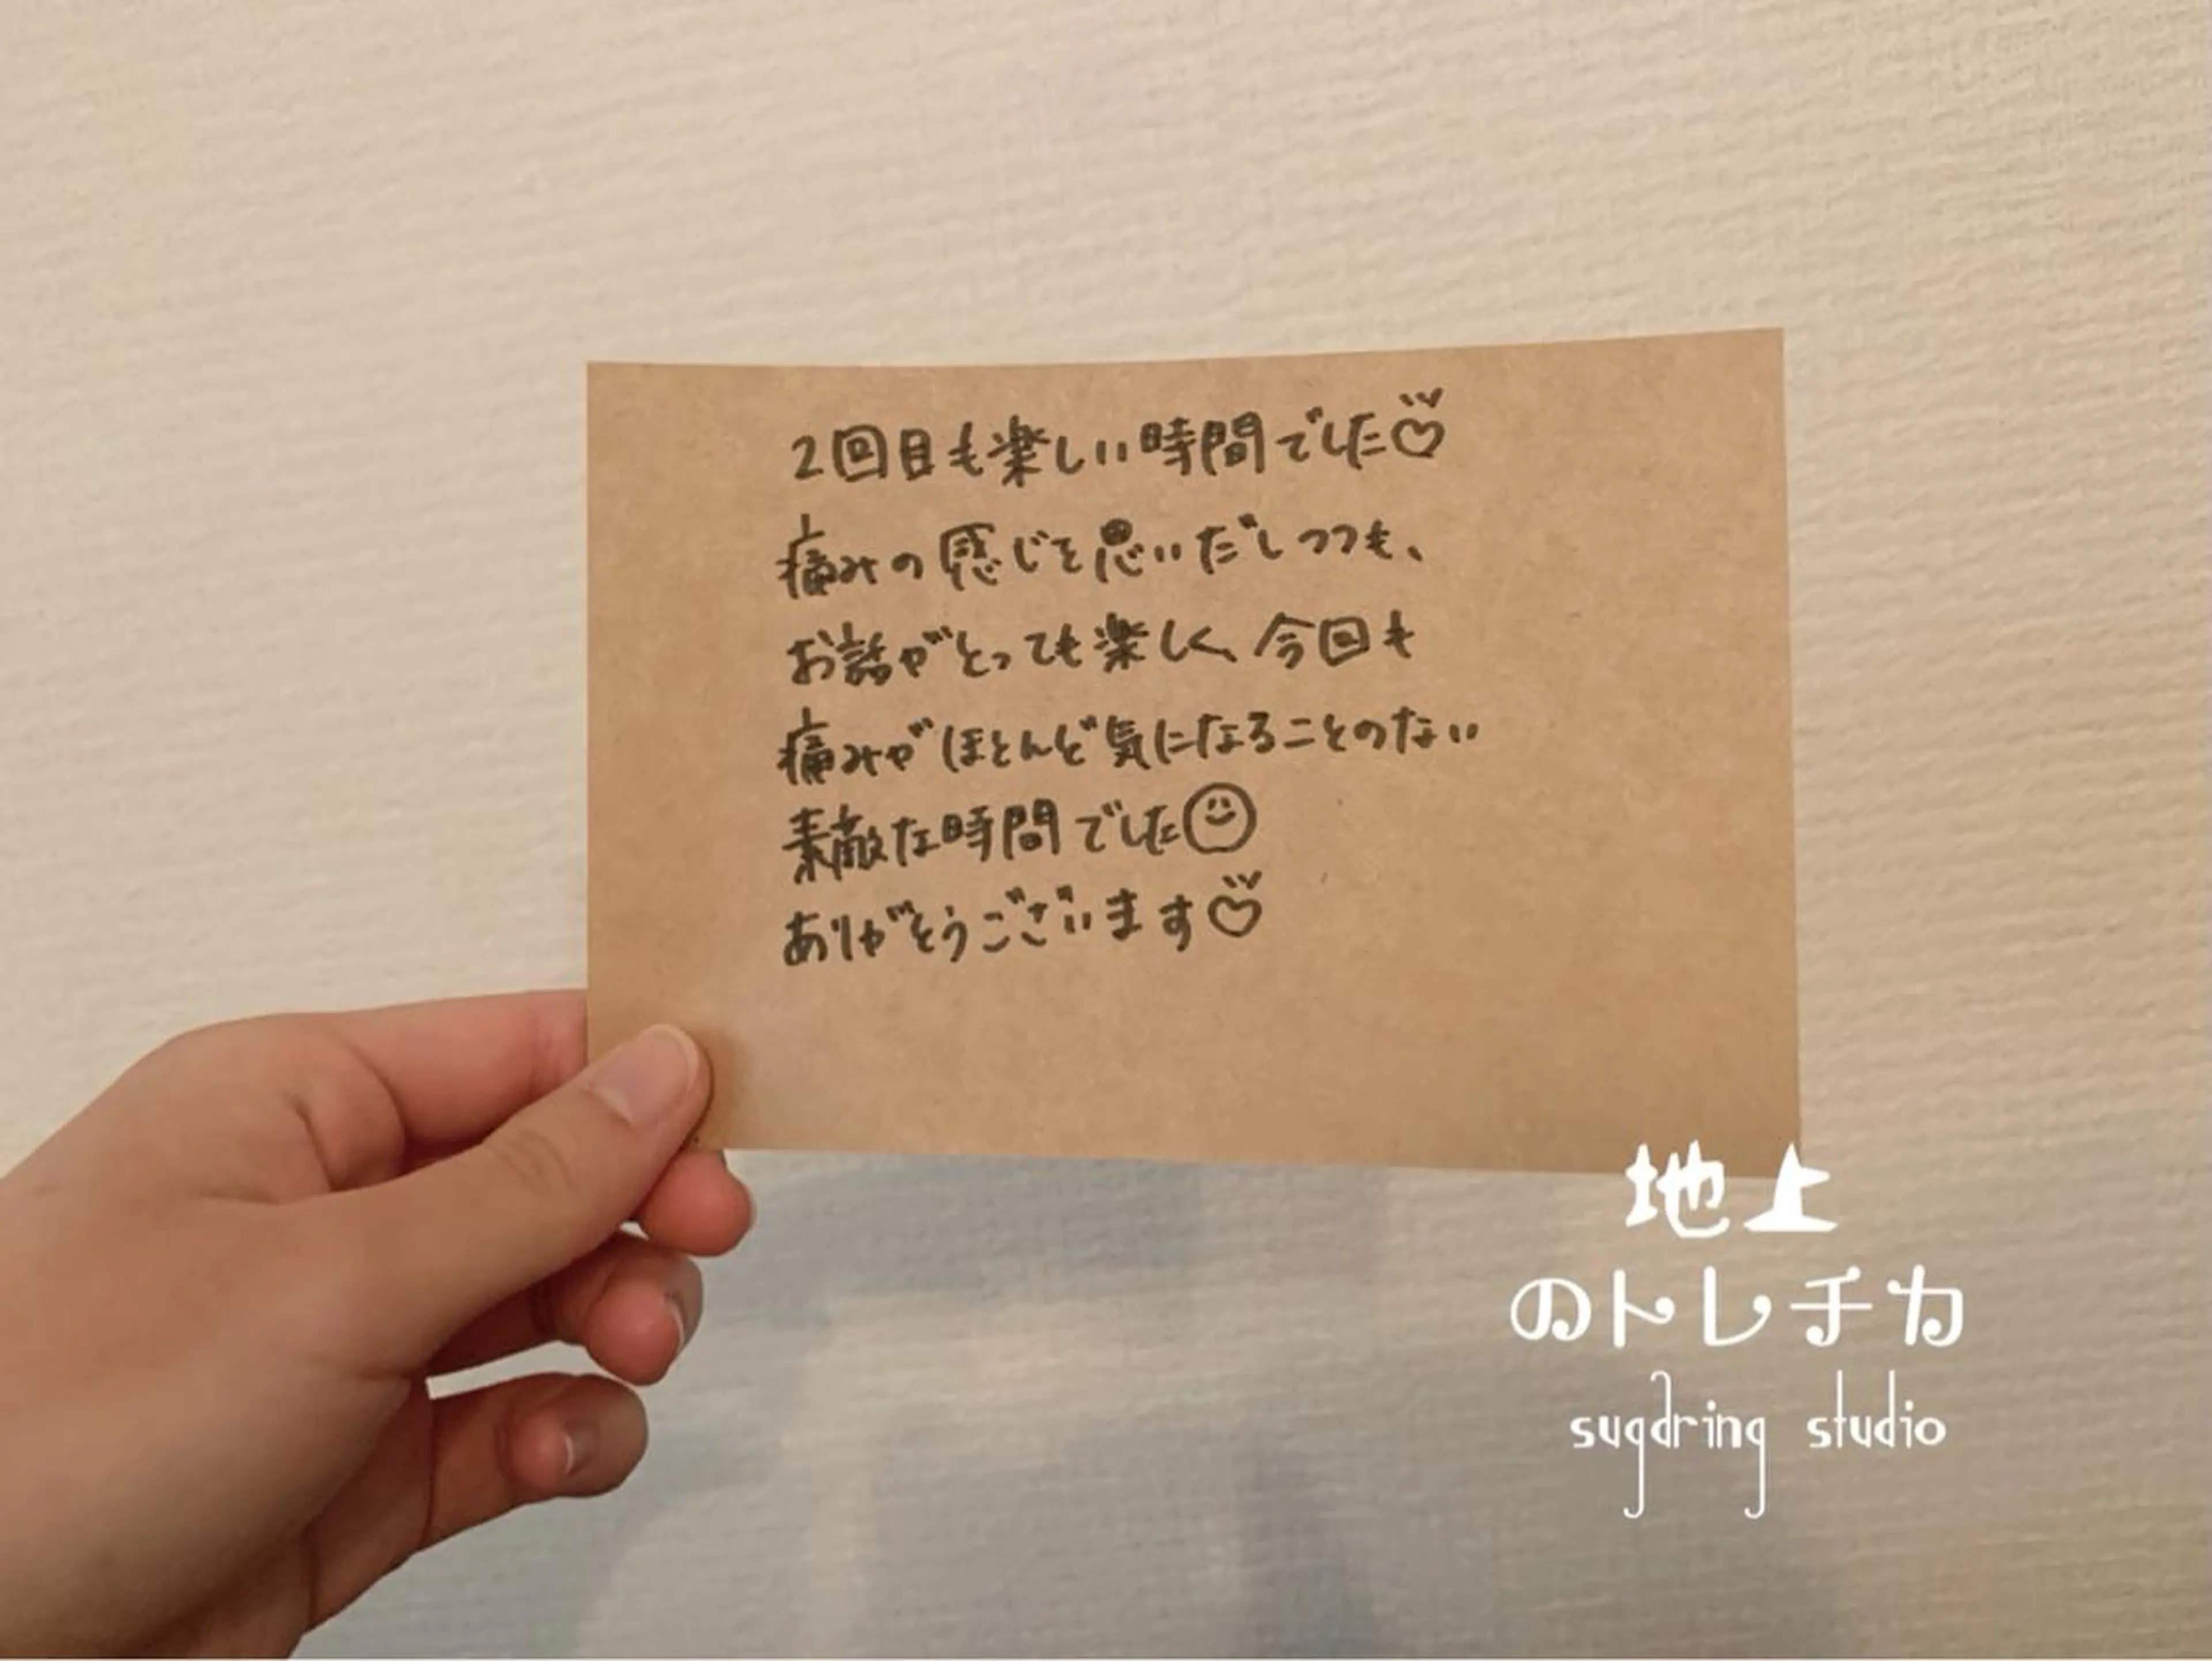 2回目も楽しい時間でした♡
痛みの感じを思いだしつつも、
お話がとっても楽しく、今回も
痛みがほとんど気になることのない
素敵な時間でした☺
ありがとうございます♡
地上
のトレチカ
sugaring studio